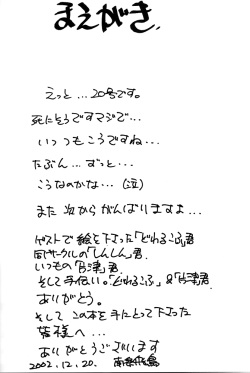 まえがき.
えっと…20号です。
死にそうですマジで…
いっつもこうですね…
たぶん…ずっと…
こうなのかな…(泣)
また次からがんばりますよ…
ゲストで絵を下さった「どわるこふ」君
同サークルの「しんしん」君.
いつもの「台津」君
そして手伝い。どわるこふ」&「台津」君
ありがとう。
そしてこの本を手にとって下さった
皆様へ…
ありがとうございます
2002.12.20.